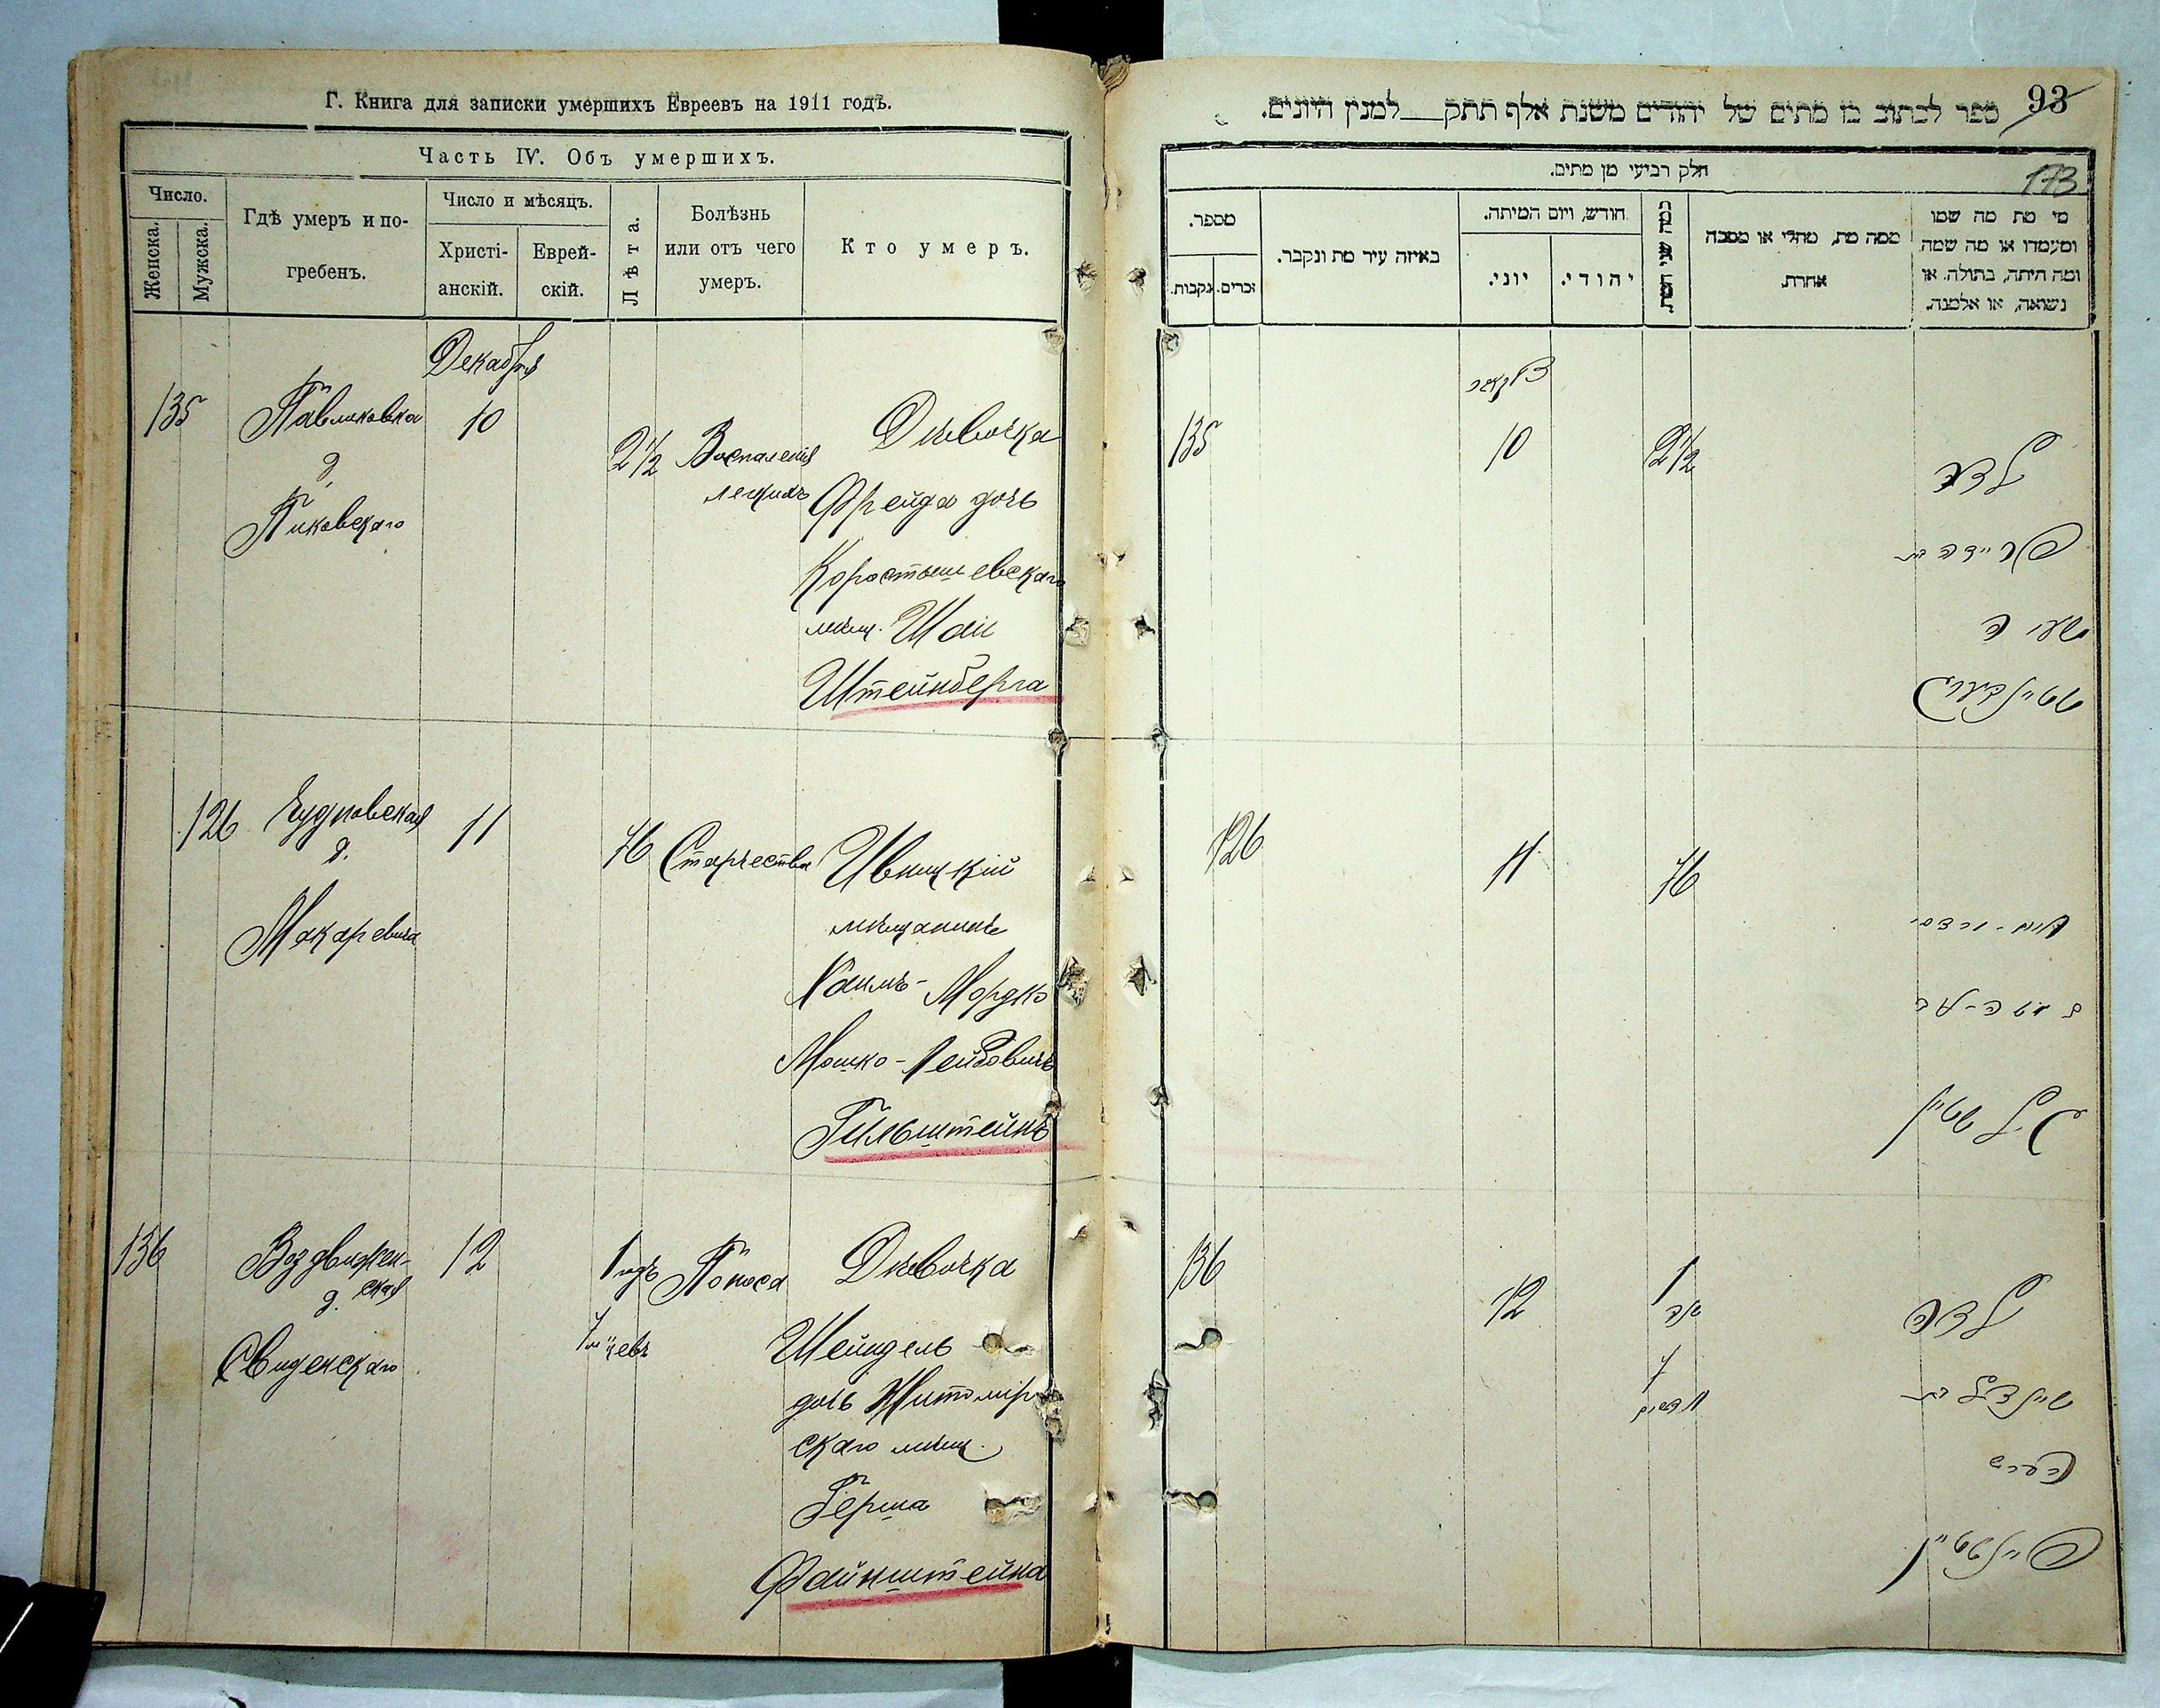 Г. Книга для записки умершихъ Евреевъ на 1911 годъ.
Часть IV. Объ умершихъ.
Число.
Женска.
Мужска.
Гдѣ умеръ и по-
гребенъ.
Число и мѣсяцъ.
Христі-
анскій.
Еврей-
скій.
Лѣта.
Болѣзнь
или отъ чего
умеръ.
Кто умеръ.
Декабря
135
Павликовка
д.
Пиковскаго
10
2 1/2
Воспаленія
легкихъ
Дѣвочка
Фрейда дочь
Коростышевскаго
мѣщ. Шаи
Штейнберга
126
Чудновская
д.
Макаревича
11
76
Старчества
Ивницкій
мѣщанинъ
Хаимъ-Мордко
Мошко-Лейбовичъ
Гильштейнъ
136
Воздвижен-
ская
д.
Свиденскаго
12
1 годъ
7 м-цевъ
Поноса
Дѣвочка
Шейндель
дочь Житомір
скаго мѣщ.
Герша
Файнштейна
93
ספר לכתוב בו מתים של יהודים משנת אלף תתק___למנין היונים.
173
חלק רביעי מן מתים.
מספר.
נקבות.
זכרים.
באיזה עיר מת ונקבר.
חודש, ויום המיתה.
יוני.
יהודי.
כמה שני המת
מסה מת, מחלי או מסבה
אחרת.
מי מת מה שמו
ומעמדו או מה שמה,
ומה היתה, בתולה. או
נשואה, או אלמנה.
דעקאבר
135
10
2 1/2
ילדה
פריידה בת
שעי ה
שטיינבערג
126
11
76
חיים-מרדכי
גילשטיין
136
12
1
שנה
7
חדשים
ילדה
שיינדל בת
הערש
פיינשטיין